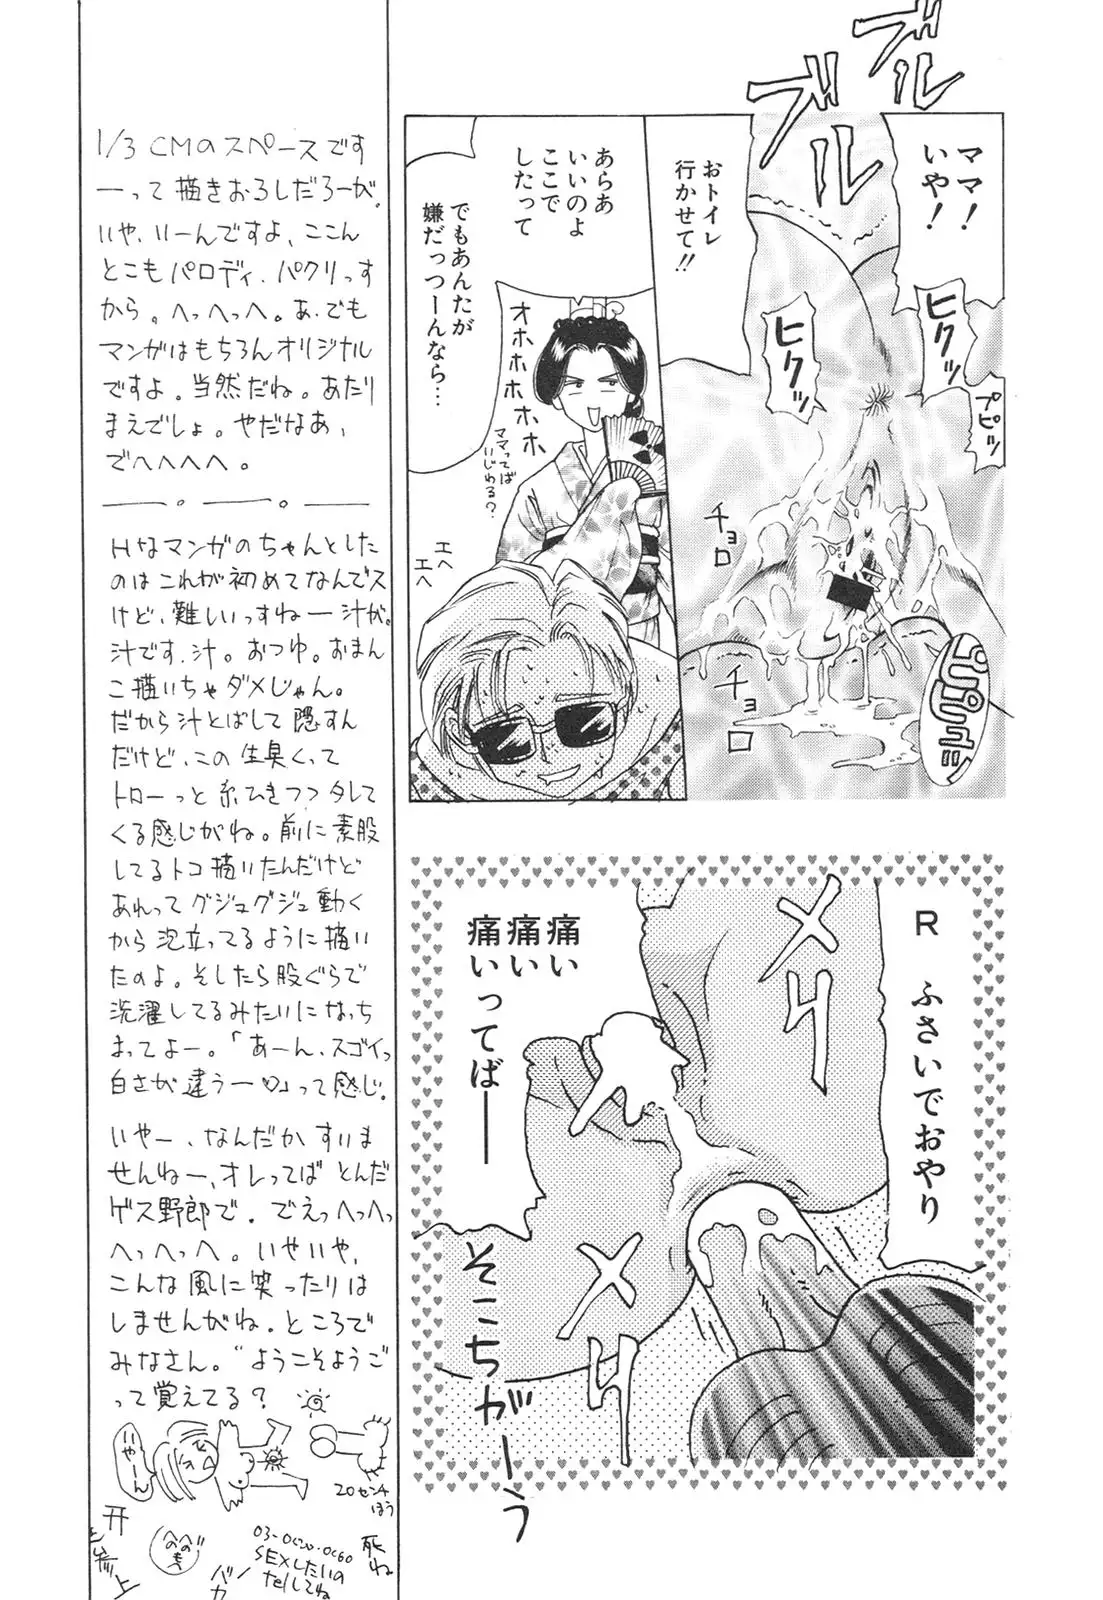 ブル
ブル
ブル
ママ！
いや！
おトイレ
行かせて!!
ヒクッ
ヒクッ
プピッ
チョロ
チョロ
あらあ
いいのよ
ここで
したって
でもあんたが
嫌だっつーんなら…
オホホホホホ
ママってば
いじわる?
エヘ
エヘ
R ふさいでおやり
メリ
メリ
痛い
痛い
痛いってばー
そこちがーう
1/3 CMのスペースです
ーって描きおろしだろーが。
いや、いーんですよ、ここん
とこもパロディ、パクリっす
から。へっへっへ。あ、でも
マンガはもちろんオリジナル
ですよ。当然だね。あたり
まえでしょ。やだなあ、
でへへへへ。
Hなマンガのちゃんとした
のはこれが初めてなんでス
けど、難しいっすねー汁が。
汁です、汁。おつゆ。おまん
こ描いちゃダメじゃん。
だから汁とばして隠すん
だけど、この生臭くって
トローっと糸ひきつつタレて
くる感じがね。前に素股
してるトコ描いたんだけど
あれってグジュグジュ動く
から泡立ってるように描い
たのよ。そしたら股ぐらで
洗濯してるみたいになっち
まってよー。「あーん、スゴイっ
白さが違うー♡」って感じ。
いやー、なんだかすいま
せんねー、オレってばとんだ
ゲス野郎で。でえっへっへっ
へっへっへ。いやいや、
こんな風に笑ったりは
しませんがね。ところで
みなさん。“ようこそようこ
って覚えてる？
いやーん
20センチ
ほう
参上
バカ
SEXしたいの
telしてね
死ね